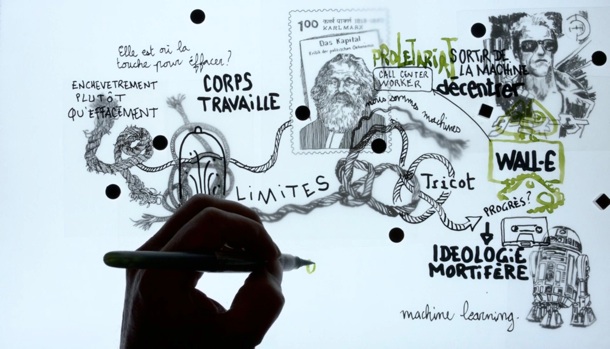 Elle est où la
touche pour effacer?
ENCHEVETREMENT
PLUTÔT
QU'EFFACEMENT
CORPS
TRAVAILLE
100
KARL MARX
Das Kapital
PROLETARIAT
CALL CENTER
WORKER
nous sommes machines
SORTIR DE
LA MACHINE
décentrer
WALL-E
LIMITES
Tricot
PROGRÈS?
IDEOLOGIE
MORTIFÈRE
machine learning.